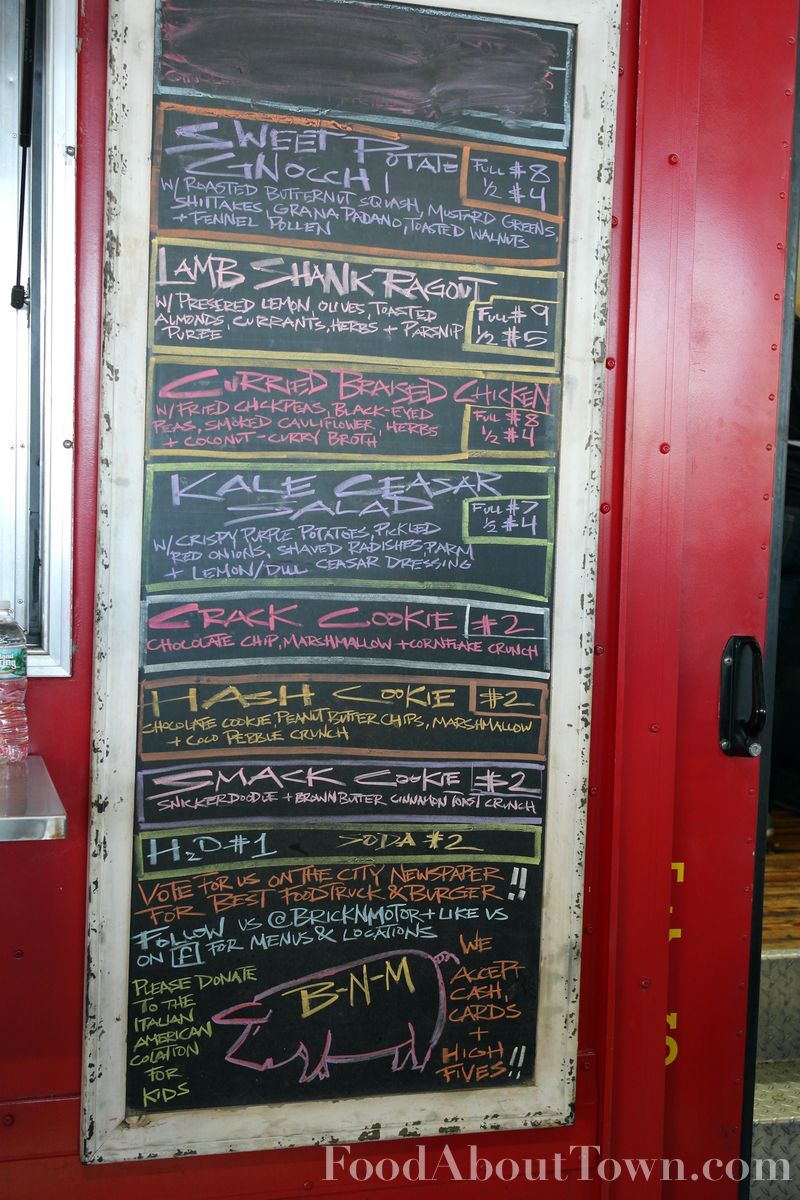 SWEET POTATE
GNOCCHI
FULL $8
1/2 $4
W/ ROASTED BUTTERNUT SQUASH, MUSTARD GREENS
SHIITAKES, GRANA PADANO, TOASTED WALNUTS
+ FENNEL POLLEN
LAMB SHANK RAGOUT
W/ PRESERED LEMON, OLIVES, TOASTED
ALMONDS, CURRANTS, HERBS + PARSNIP
PUREE
FULL $9
1/2 $5
CURRIED BRAISED CHICKEN
W/ FRIED CHICKPEAS, BLACK-EYED
PEAS, SMOKED CAULIFLOWER, HERBS
+ COCONUT-CURRY BROTH
FULL $8
1/2 $4
KALE CEASAR
SALAD
FULL $7
1/2 $4
W/ CRISPY PURPLE POTATOES, PICKLED
RED ONIONS, SHAVED RADISHES, PARM
+ LEMON/DILL CEASAR DRESSING
CRACK COOKIE $2
CHOCOLATE CHIP, MARSHMALLOW + CORNFLAKE CRUNCH
HASH COOKIE $2
CHOCOLATE COOKIE, PEANUT BUTTER CHIPS, MARSHMALLOW
+ COCO PEBBLE CRUNCH
SMACK COOKIE $2
SNICKERDOODLE + BROWN BUTTER CINNAMON TOAST CRUNCH
H2O $1 SODA $2
VOTE FOR US ON THE CITY NEWSPAPER
FOR BEST FOODTRUCK & BURGER!!
FOLLOW US @BRICKNMOTOR + LIKE US
ON f FOR MENUS & LOCATIONS
PLEASE DONATE
TO THE
ITALIAN
AMERICAN
COLATION
FOR
KIDS
B-N-M
WE
ACCEPT
CASH,
CARDS
+
HIGH
FIVES!!
FoodAboutTown.com